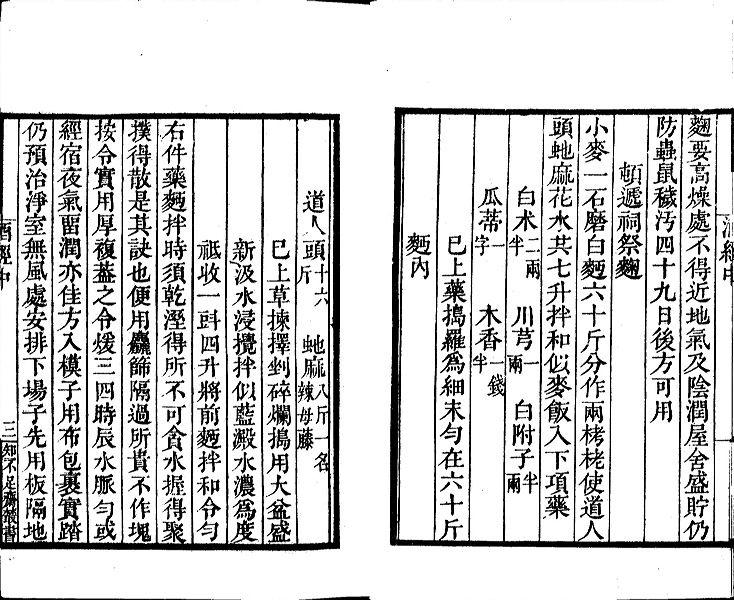 酒經中
麴要高燥處不得近地氣及陰潤屋舍盛貯仍
防蟲鼠穢污四十九日後方可用
頓遞祠祭麴
小麥一石磨白麪六十斤分作兩栲栳使道人
頭虵麻花水共七升拌和似麥飯入下項藥
白朮二兩半 川芎一兩 白附子半兩
瓜蒂一字 木香一錢半
巳上藥搗羅爲細末勻在六十斤
麪內
道人頭十六斤 虵麻八斤一名辣母藤
巳上草揀擇剉碎爛搗用大盆盛
新汲水浸攪拌似藍澱水濃爲度
祗收一㪷四升將前麪拌和令勻
右件藥麪拌時須乾溼得所不可貪水握得聚
撲得散是其訣也便用麤篩隔過所貴不作塊
按令實用厚複蓋之令煖三四時辰水脈勻或
經宿夜氣畱潤亦佳方入模子用布包裹實踏
仍預治淨室無風處安排下場子先用板隔地
酒經中
三
知不足齋叢書